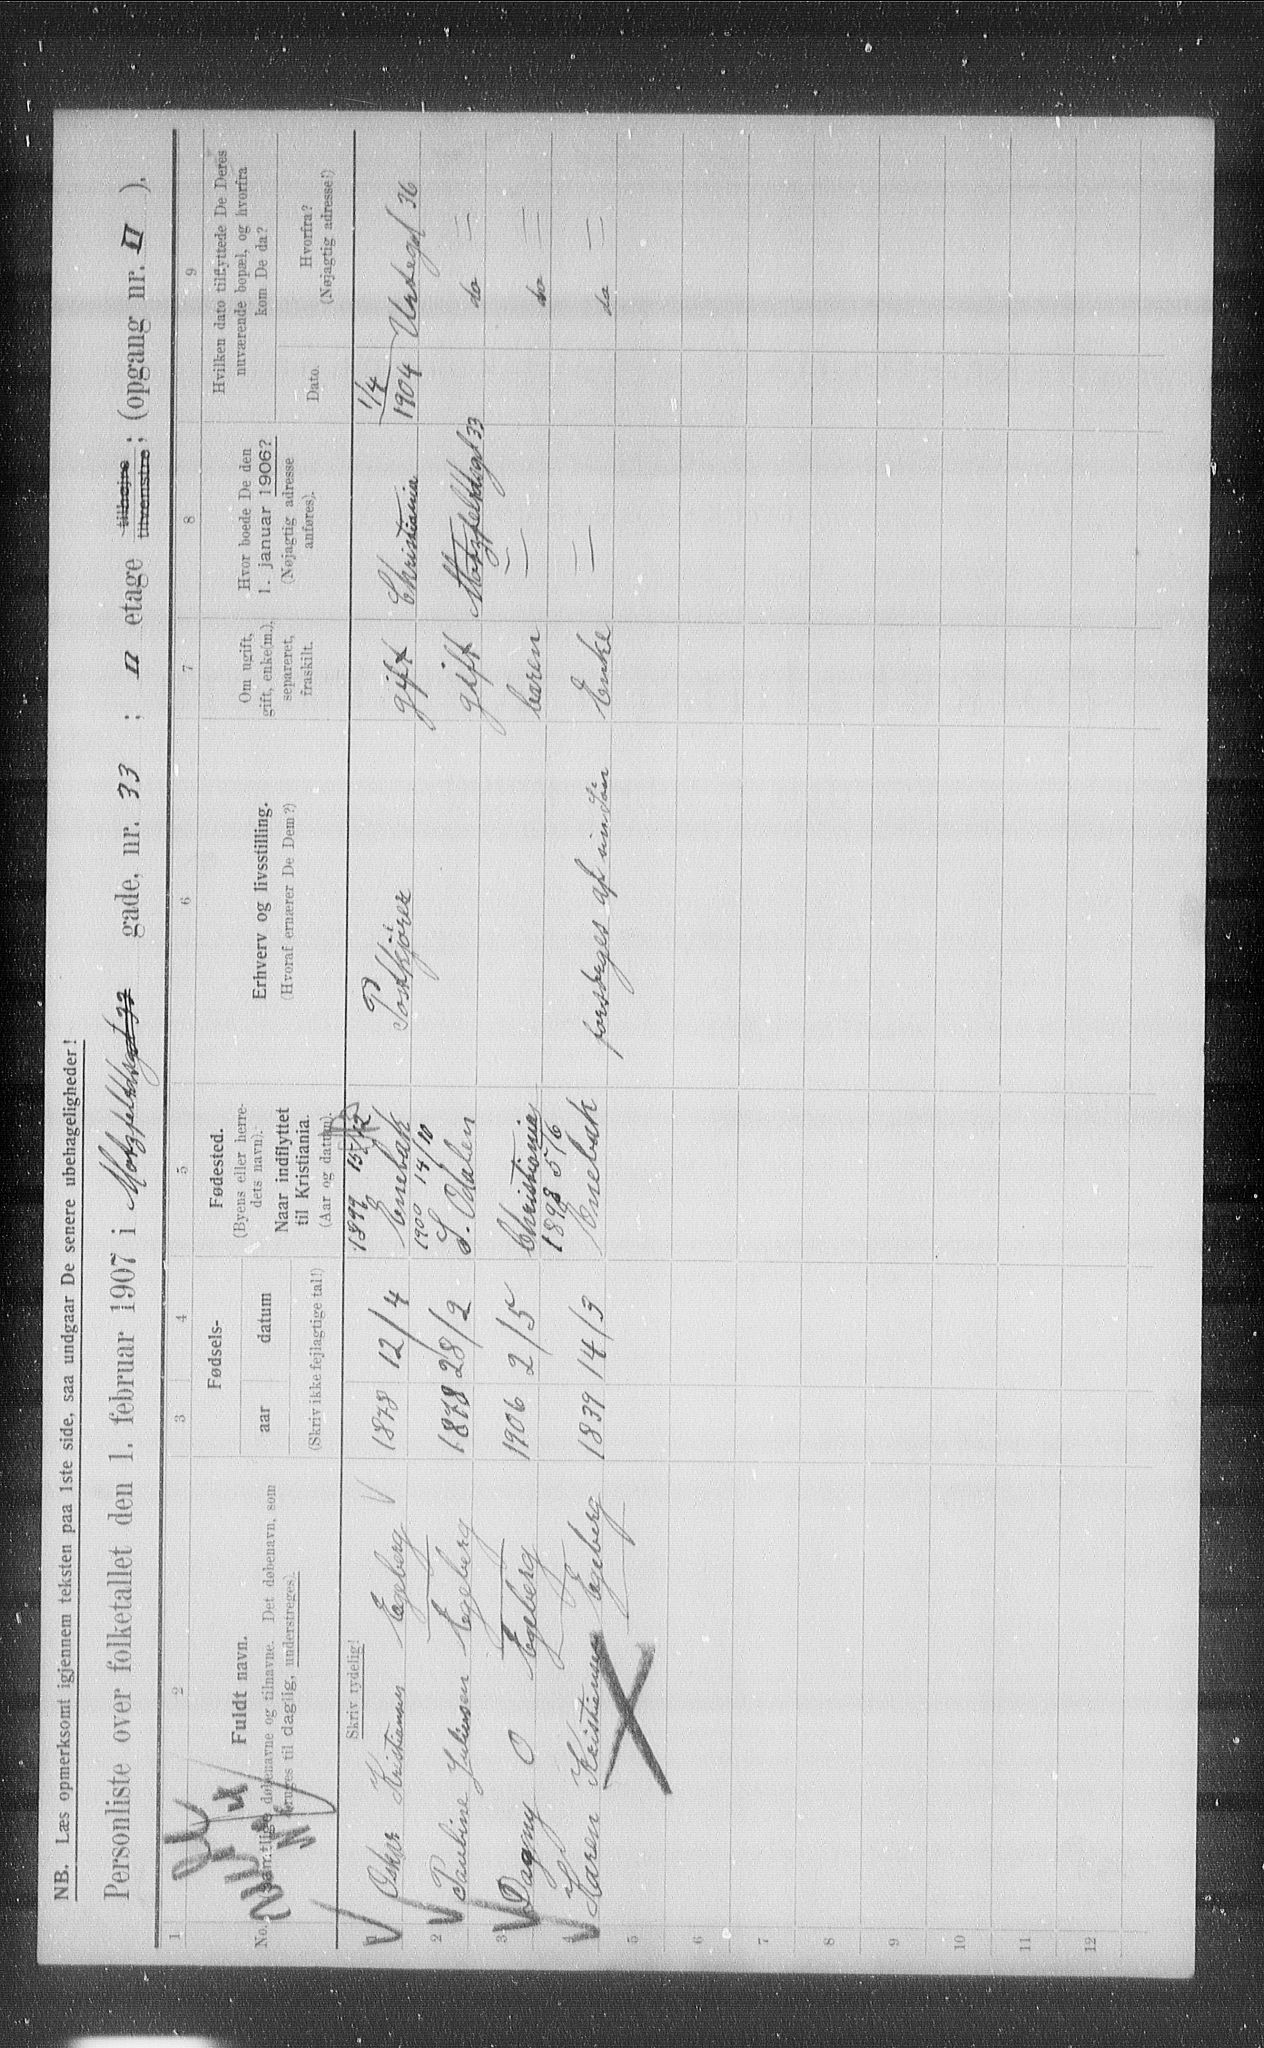 NB. Læs opmerksomt igjennem teksten paa 1ste side, saa undgaar De senere ubehageligheder!
Personliste over folketallet den 1. februar 1907 i Motzfeldtsgt 33 gade, nr. 33 ; II etage tilhøjre tilvenstre ; (opgang nr. II ).
1 2 3 4 5 6 7 8 9
No.
Fuldt navn.
(Samtlige døbenavne og tilnavne. Det døbenavn, som
bruges til daglig, understreges).
Fødsels-
aar datum
(Skriv ikke fejlagtige tal!)
Fødested.
(Byens eller herre-
dets navn).
Naar indflyttet
til Kristiania.
(Aar og datum).
Erhverv og livsstilling.
(Hvoraf ernærer De Dem?)
Om ugift,
gift, enke(m.),
separeret,
fraskilt.
Hvor boede De den
1. januar 1906?
(Nøjagtig adresse
anføres).
Hvilken dato tilflyttede De Deres
nuværende bopæl, og hvorfra
kom De da?
Dato.
Hvorfra?
(Nøjagtig adresse!)
Skriv tydelig!
1899 15/12 1/4
1 Oskar Kristiansen Egeberg 1878 12/4 Enebak Postkjører gift Christiania 1904 Urtegd 36
1900 14/10
2 Pauline Juliusen Egeberg 1878 28/2 S. Odalen gift Motzfeldtsgd 33 do =
3 Dagny O Egeberg 1906 2/5 Christiania baren = do =
1898 5/6
4 Karen Kristiansen Egeberg 1839 14/3 Enebak forsørges af sin Søn Enke = do =
5
6
7
8
9
10
11
12